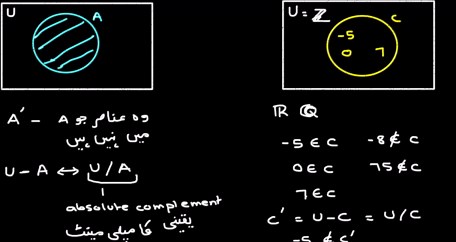 U
A
A' – وہ عناصر جو A
میں نہیں ہیں
U – A ↔ U / A
absolute complement
یقینی کامپلی مینٹ
U = ℤ
C
-5
0 7
ℝ ℚ
-5 ∈ C -8 ∉ C
0 ∈ C 75 ∉ C
7 ∈ C
C' = U – C = U / C
-5 ∉ C'